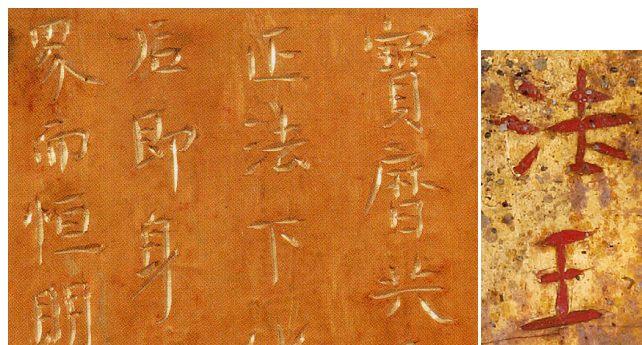 寶曆共
正法下
后即身
界而恒明
法王